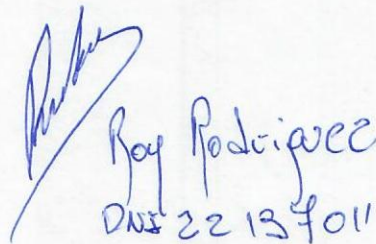 Roy Rodriguez
DNI 22137011